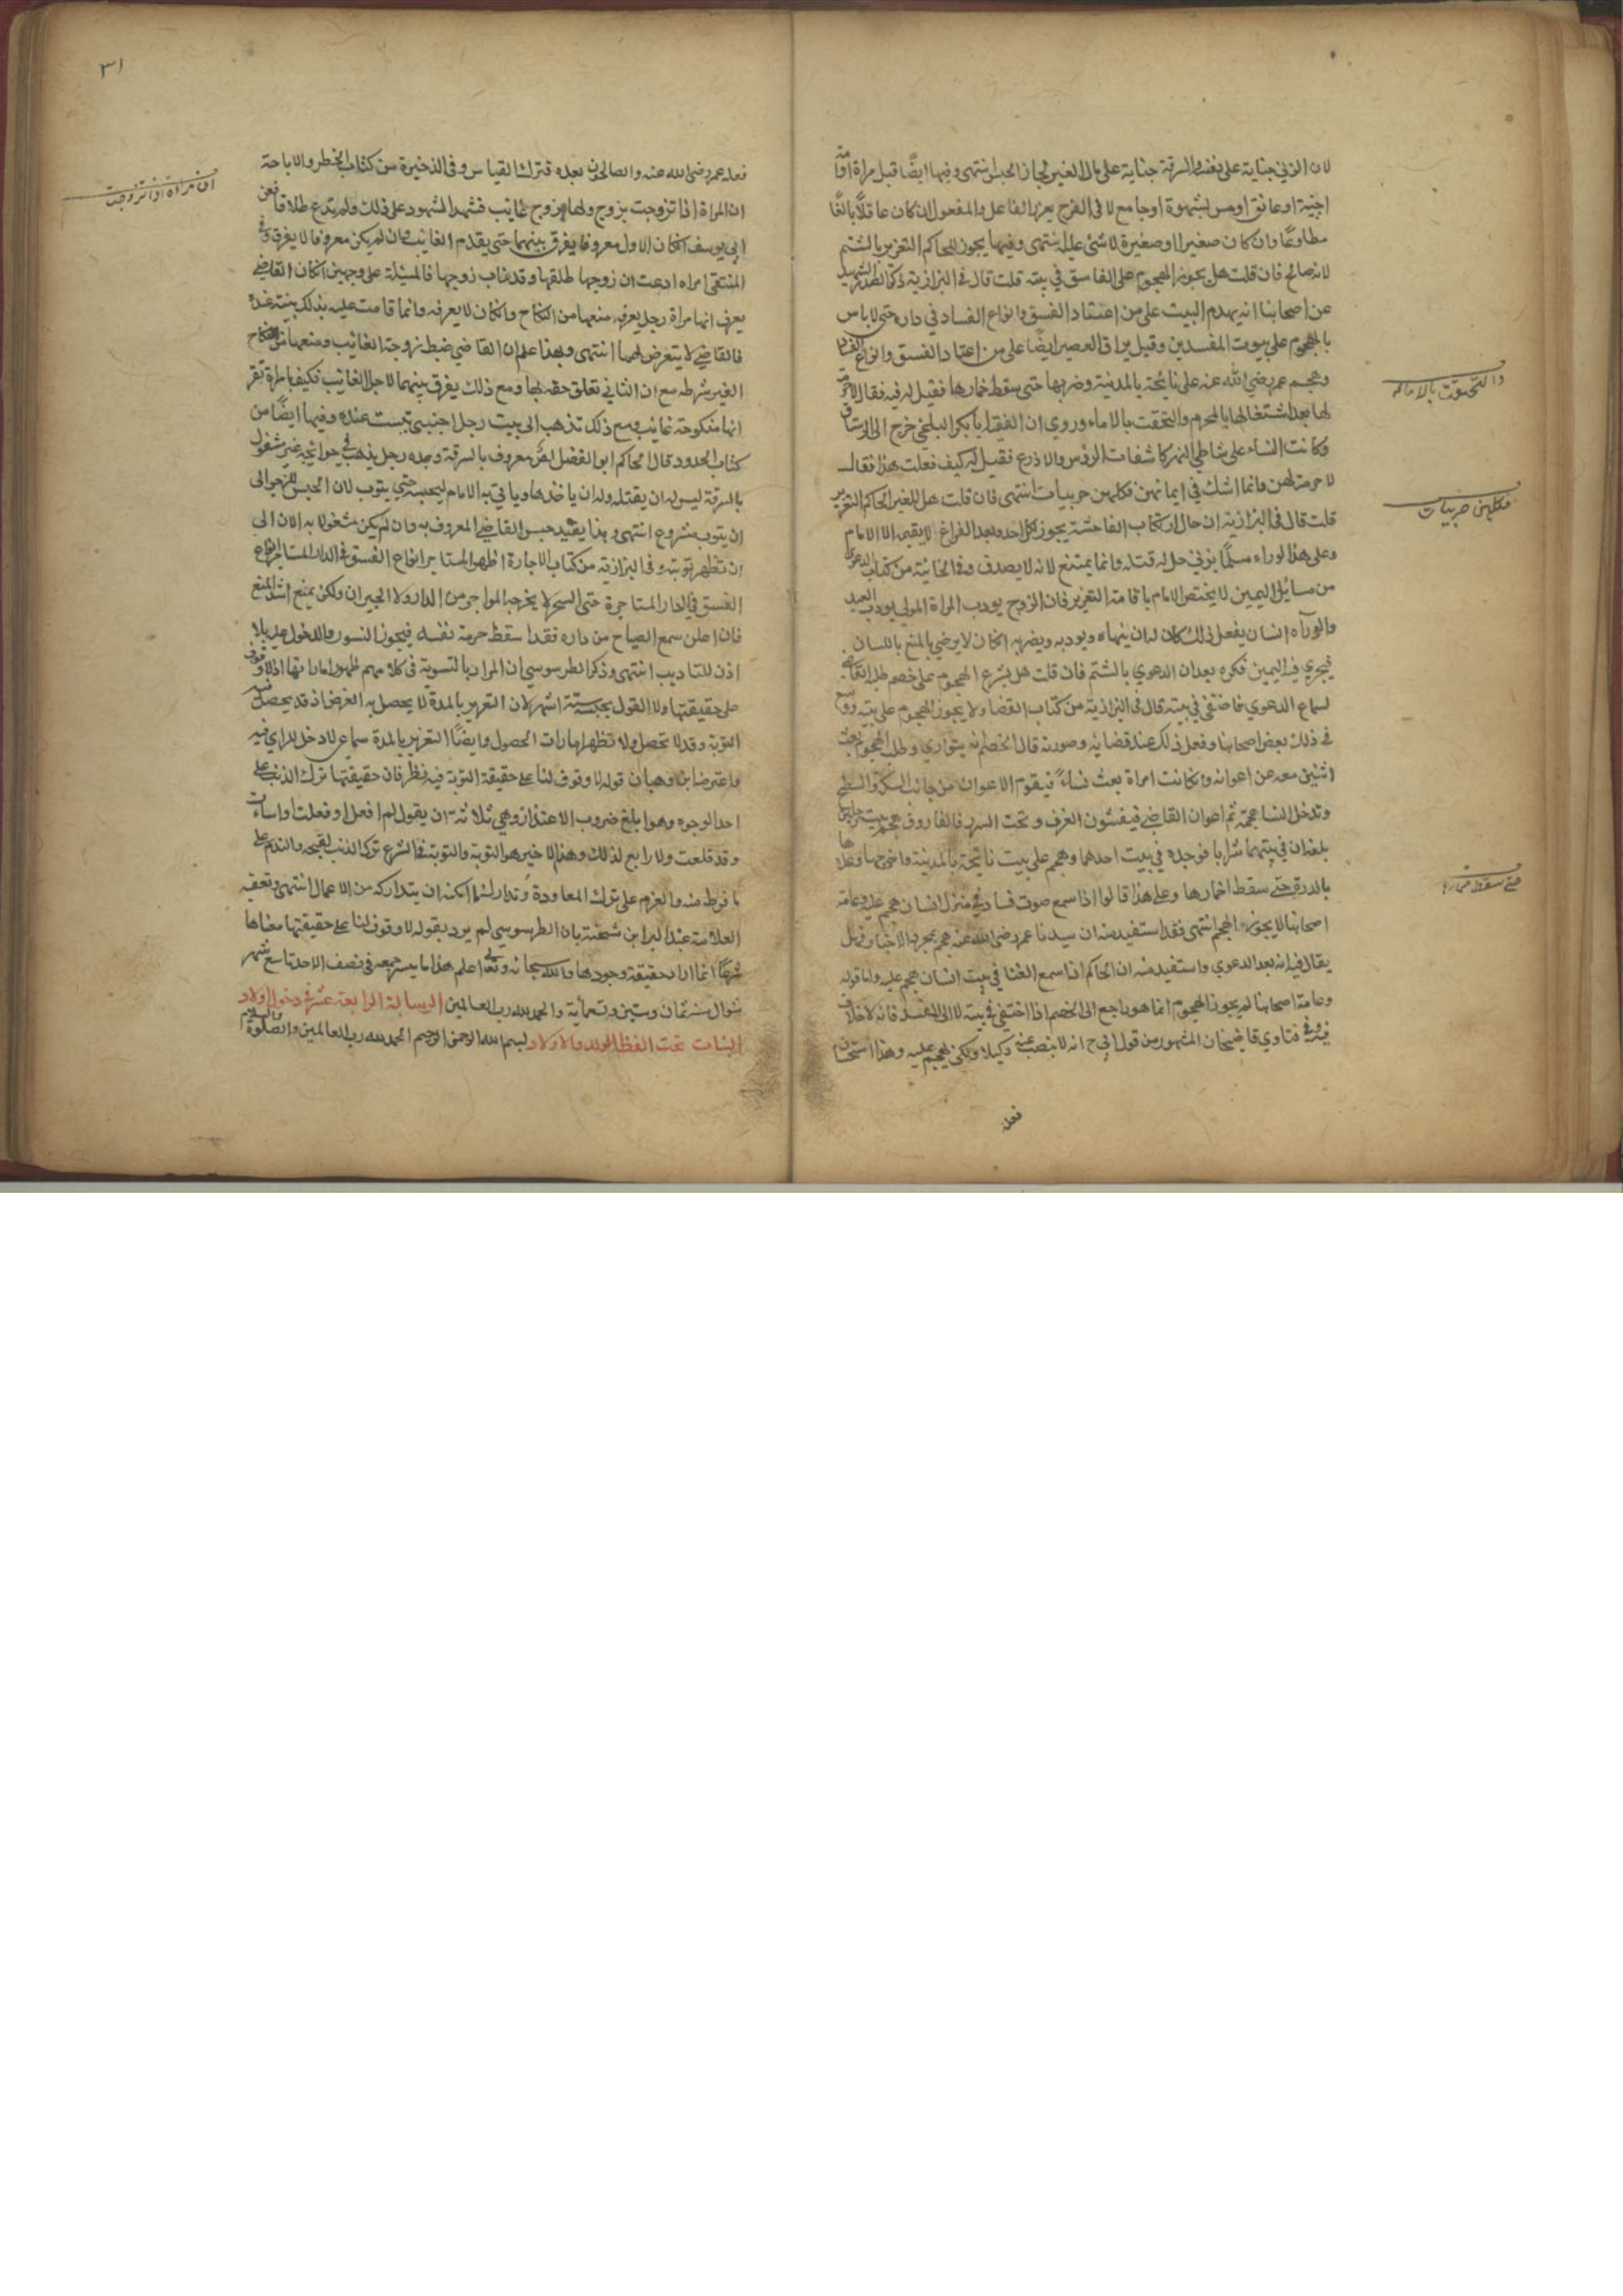 لان الزني جناية على نفسه والسرقة جناية على مال الغير لجاز الحبس انتهى وفيها ايضا قبل مراة او امة
اجنبية او عانق او مس بشهوة او جامع لا في الفرج يعزر الفاعل والمفعول ان كان عاقلا بالغا
مطاوعا وان كان صغيرا او صغيرة لا شئ عليه انتهى وفيها يجوز للحاكم التعزير بالشتم
لانه صالح فان قلت هل يجوز الهجوم على الفاسق في بيته قلت قال في البزازية ذكر الصدر الشهيد
عن اصحابنا انه يهدم البيت على من اعتقاد الفسق وانواع الفساد في داره حتى لا باس
بالهجوم على بيوت المفسدين وقيل يراق العصير ايضا على من اعتاد الفسق وانواع الفساد
وهجم عمر رضي الله عنه على نايحة بالمدينة وضربها حتى سقط خمارها فقيل له فيه فقال لا حرمة
لها بعد اشتغالها بالمحرم والتحقت بالاماء وروي ان الفقيه ابا بكر البلخي خرج الى الرستاق
وكانت النساء على شاطي النهر كاشفات الرؤس والاذرع فقيل له كيف فعلت هذا فقال
لا حرمة لهن وانما اشك في ايمانهن فكلهن حربيات انتهى فان قلت هل لغير الحاكم التعزير
قلت قال في البزازية ان حال ارتكاب الفاحشة يجوز لكل احد وبعد الفراغ لا يقيمه الا الامام
وعلى هذا لو راء مسلما يزني حل له قتله وانما يمتنع لانه لا يصدق وفي الخانية من كتاب الدعوى
من مسائل اليمين لا يختص الامام باقامة التعزير فان الزوج يودب المراة المولى يودب العبد
ولو رآه انسان يفعل ذلك كان له ان ينهاه ويودبه ويضربه ان كان لا يرضي بالمنع باللسان
فيجري فيه اليمين فكره بعد ان الدعوي بالشتم فان قلت هل يشرع الهجوم على خصم طلبه القاضي
لسماع الدعوي فاختفى في بيته قال في البزازية من كتاب القضا ولا يجوز الهجوم على بيته ووسع
في ذلك بعض اصحابنا وفعل ذلك عند قضائه وصورته قال الخصم انه يتواري وطلب الهجوم بعث
اثنين معه عن اعوانه وان كانت امراة بعث نساء فيقوم الاعوان من جانب السكة والسطح
وتدخل النساء حجمة ثم اعوان القاضي فيفتشون الغرف وتحت السرر فالفاروق هجم بيت رجلين
بلغه ان في بيتهما شرابا فوجده في بيت احدهما وهجم على بيت نايحة بالمدينة واخرجها وعلاها
بالدرة حتى سقط اخمارها وعلى هذا قالوا اذا سمع صوت فساد في منزل انسان هجم عليه وعامة
اصحابنا لا يجوزوا الهجم انتهى فقد استفيد منه ان سيدنا عمر رضي الله عنه هجم بمجرد الاخبار فهل
يقال فيه انه بعد الدعوي واستفيد منه ان الحاكم اذا سمع الغنا في بيت انسان هجم عليه واما قوله
وعامة اصحابنا لم يجوز الهجوم انما هو راجع الى الخصم اذا اختفى في بيته لا الى المفسد فانه لا خلاف
فيه وفي فتاوي قاضيخان المشهور من قول ابي ح انه لا ينصب عنه وكيلا ولكن يهجم عليه وهذا استحسان
فعله
والتحقت بالاماء
فكلهن حربيات
حتى سقط خمارها
٣١
فعله عمر رضي الله عنه والصالحون بعده فترك القياس وفي الذخيرة من كتاب الحظر والاباحة
ان المراة اذا تزوجت بزوج ولها زوج غايب فشهد الشهود على ذلك ولم تدع طلاقا فعن
ابي يوسف ان كان الاول معروفا يفرق بينهما حتى يقدم الغائب وان لم يكن معروفا لا يفرق وفي
المنتقى امراه ادعت ان زوجها طلقها وقد غاب زوجها فالمسئلة على وجهين ان كان القاضي
يعرف انها مراة رجل يعرفه منعها من النكاح وان كان لا يعرفه وانما قامت عليه بذلك بينة عنده
فالقاضي لا يتعرض لهما انتهى وبهذا علم ان القاضي ضبط زوجة الغائب ومنعها من النكاح
الغير شرطه مع ان الثاني تعلق حقه بها ومع ذلك يفرق بينهما لاجل الغائب فكيف بامراة تقر
انها منكوحة غائب ومع ذلك تذهب الى بيت رجل اجنبي تبست عنده وفيها ايضا من
كتاب الحدود قال الحاكم ابو الفضل لص معروف بالسرقة وجده رجل يذهب في حوائجه غير مشغول
بالسرقة ليس له ان يقتله وله ان ياخذها وياتي به الامام ليحبسه حتى يتوب لان الحبس للزجر الى
ان يتوب مشروع انتهى وبهذا يقيد حبس القاضي المعروف به وان لم يكن مشغولا به الان الى
ان تظهر توبته وفي البزازية من كتاب الاجارة اظهر المستاجر انواع الفسق في الدار المستاجر انواع
الفسق في الدار المستاجرة حتى السحر لا يخرجه المواجر من الدار ولا الجيران ولكن يمنع اشد المنع
فان اعلن سمع الصياح من داره فقد اسقط حرمة نفسه فيجوز التسور والدخول عليه بلا
اذن للتاديب انتهى وذكر الطرسوسي ان المراد بالتسوية في كلامهم ظهور اماراتها اذ لا وقوف
على حقيقتها ولا القول بحبسه ستة اشهر لان التعزير بالمدة لا يحصل به الغرض اذ قد يحصل فيه
التوبة وقد لا تحصل ولا تظهر امارات الحصول وايضا التعزير بالمدة سماعي لا دخل للراي فيه
واعترضه ابن وهبان قوله لا وقوف لنا على حقيقة التوبة فيه نظر فان حقيقتها ترك الذنب على
احد الوجوه وهو ابلغ ضروب الاعتذار وهي ثلاثة ان يقول لم افعل او فعلت واسات
وقد قلعت ولا رابع لذلك وهذا الاخير هو التوبة والتوبة في الشرع ترك الذنب لقبحه والندم على
ما فرط منه والعزم على ترك المعاودة وتدارك ما امكنه ان يتداركه من الاعمال انتهى وتعقبه
العلامة عبد البر ابن شحنة بان الطرسوسي لم يرد بقوله لا وقوف لنا على حقيقتها معناها
شرعا انما اراد حقيقة وجودها والله سبحانه وتعالى اعلم هذا ما يسر جمعه في نصف الاحد تاسع شهر
شوال سنة ثمان وستين وتسعمائة والحمد لله رب العالمين الرسالة الرابعة عشر في دخول اولاد
البنات تحت الفظ الولد والاولاد بسم الله الرحمن الرحيم الحمد لله رب العالمين والصلوة والسلام
ان مراة اذا تزوجت